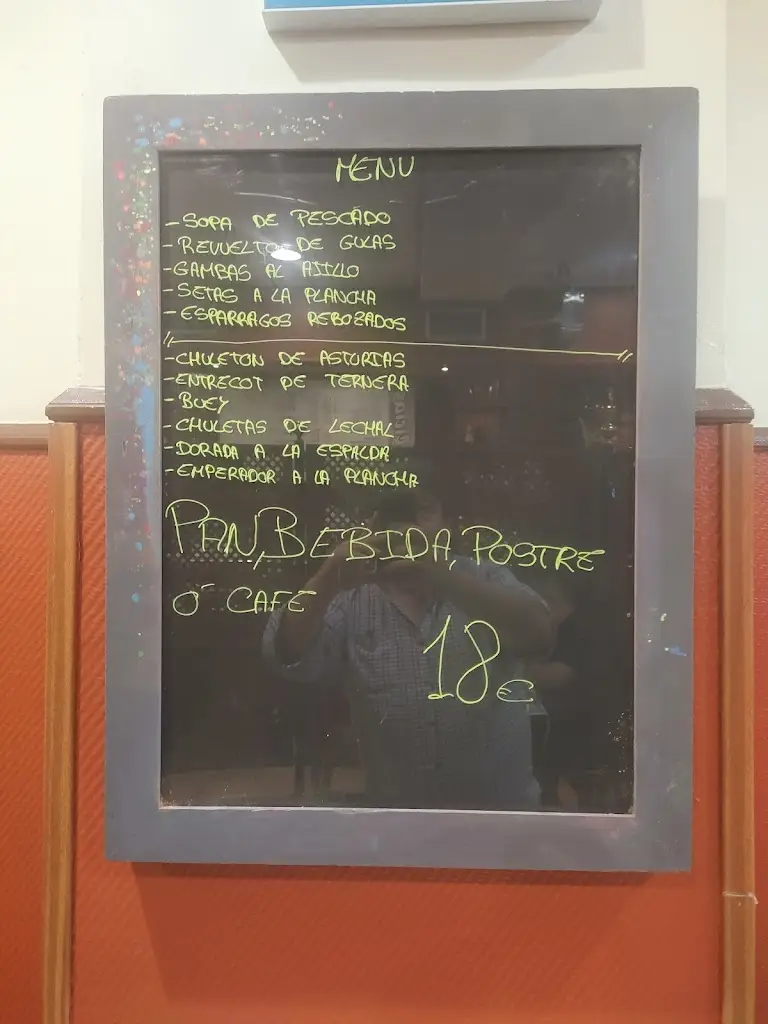 MENU
-SOPA DE PESCADO
-REVUELTO DE GULAS
-GAMBAS AL AJILLO
-SETAS A LA PLANCHA
-ESPARRAGOS REBOZADOS
-CHULETON DE ASTURIAS
-ENTRECOT DE TERNERA
-BUEY
-CHULETAS DE LECHAL
-DORADA A LA ESPALDA
-EMPERADOR A LA PLANCHA
PAN, BEBIDA, POSTRE
O´ CAFE
18€